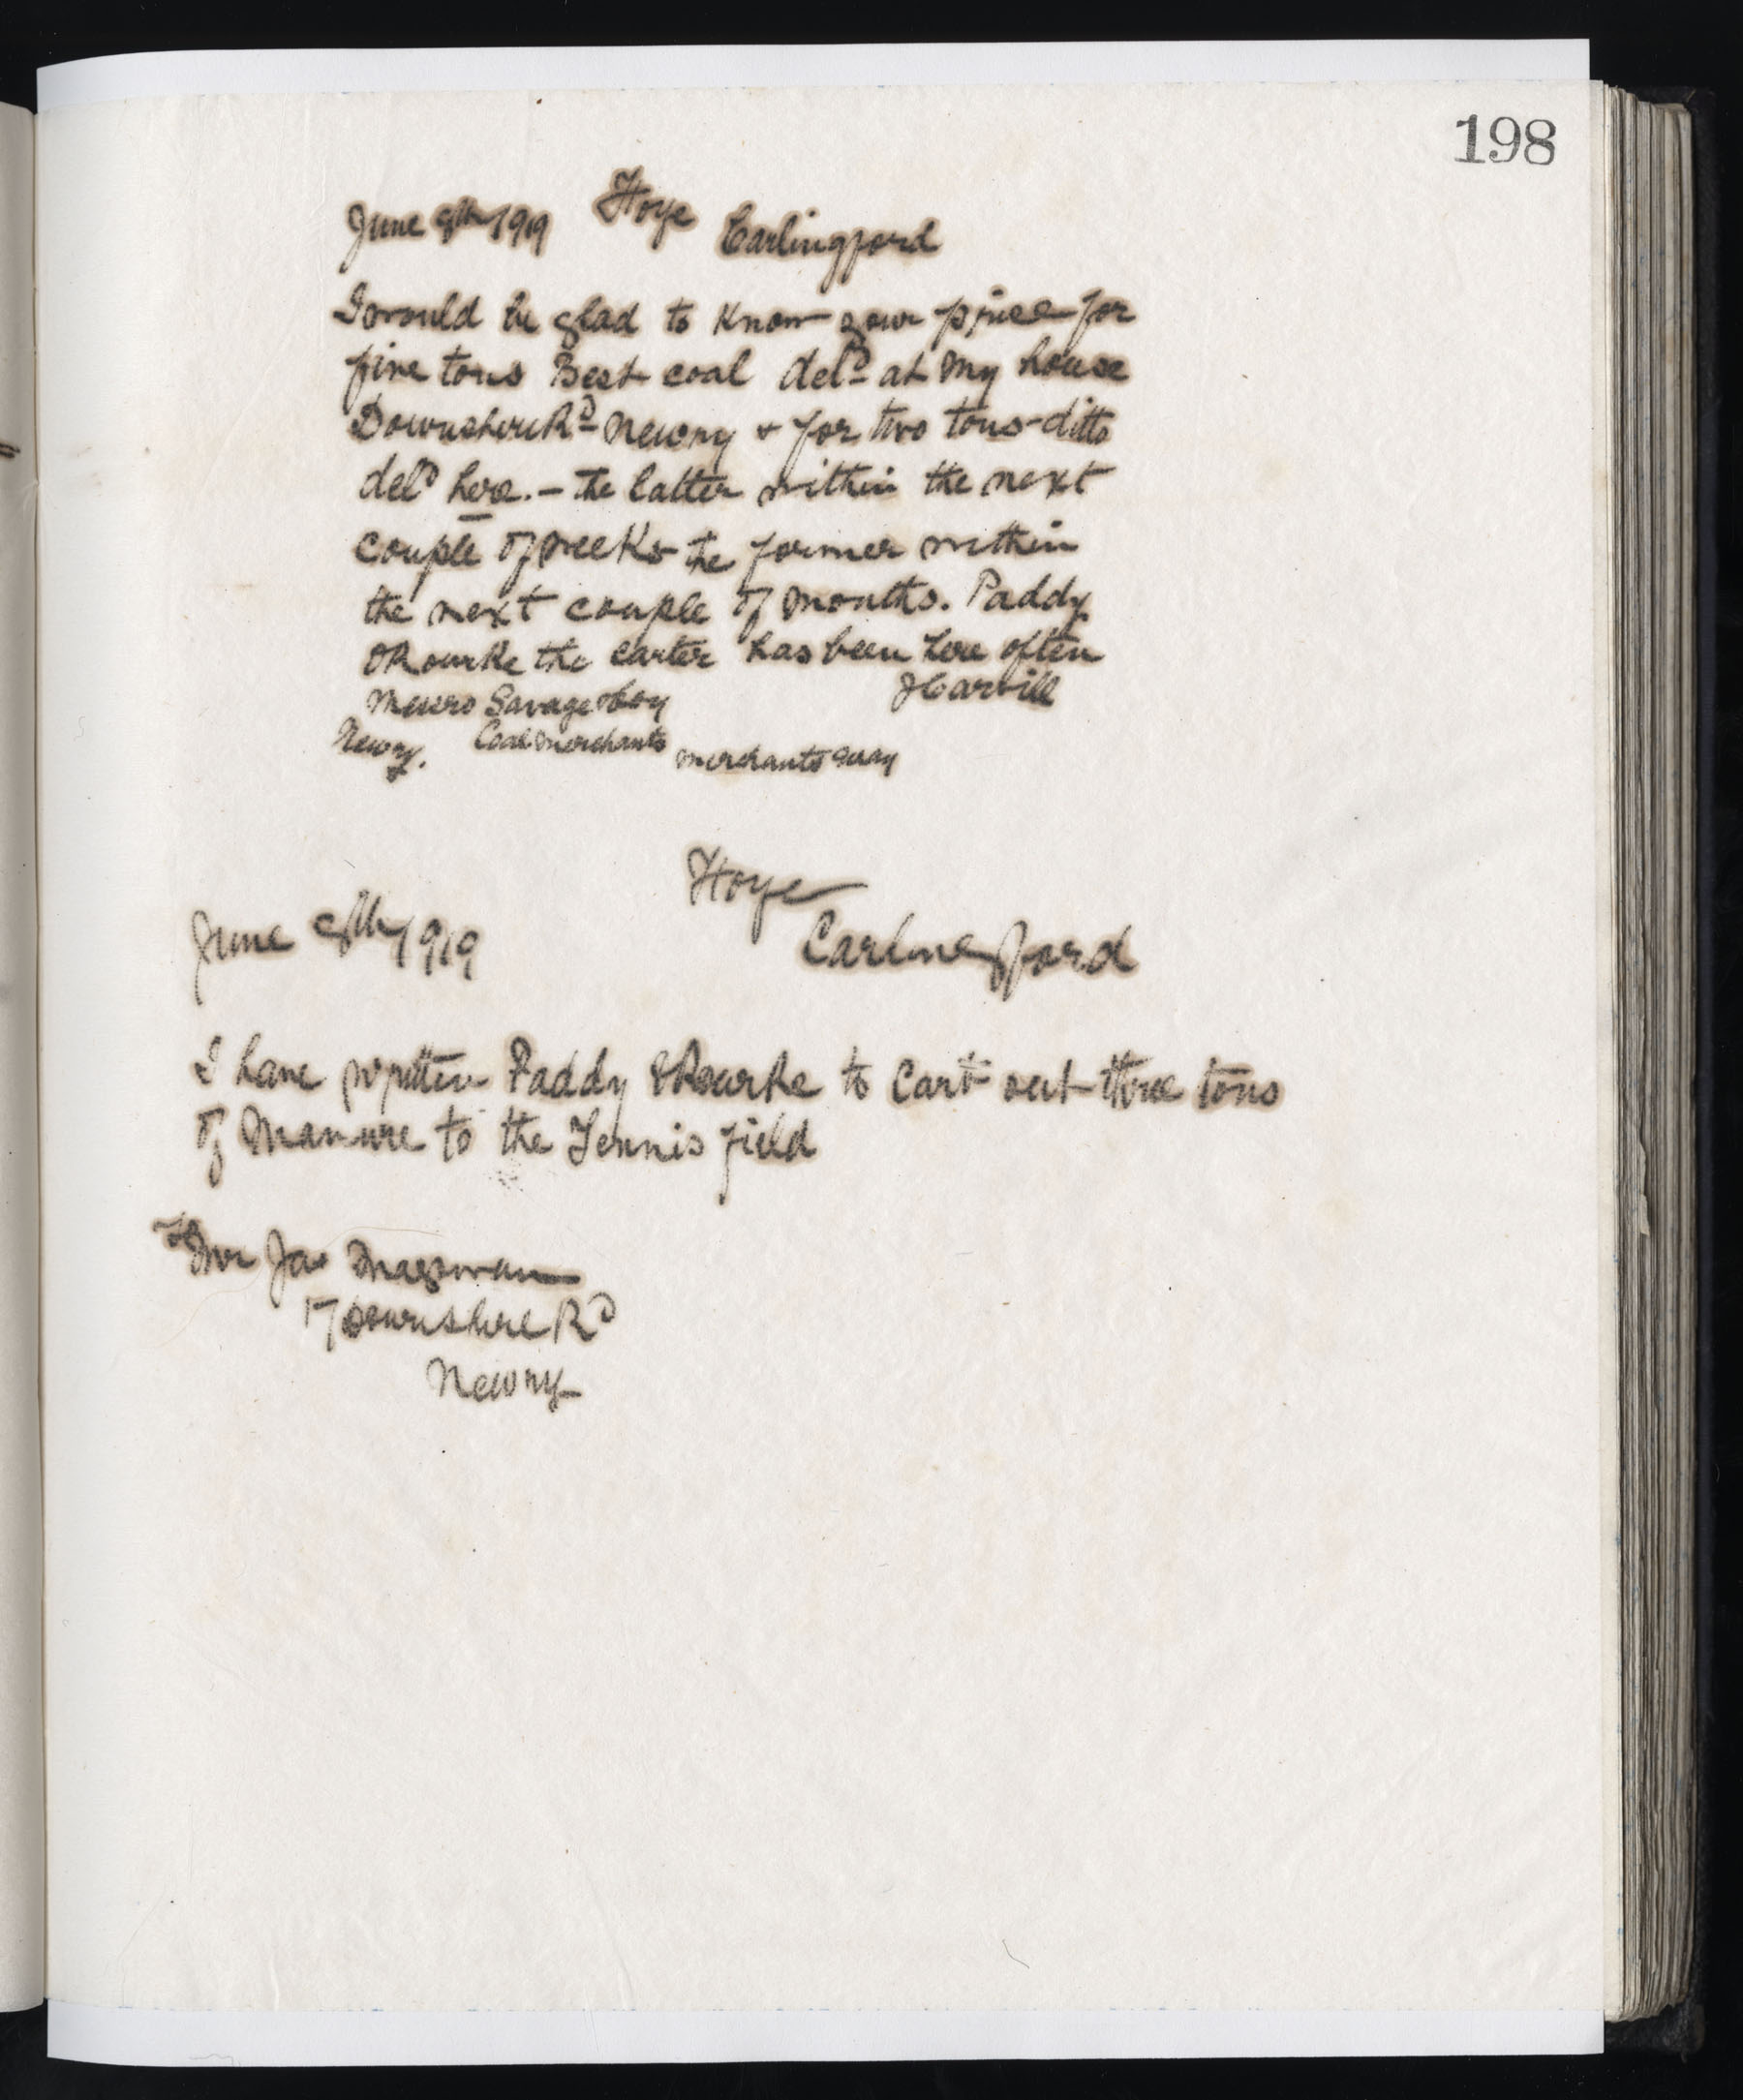 198
June 8th 1919 Hoye Carlingford
I would be glad to know your price for
five tons Best coal deld at my house
Downshire Rd Newry & for two tons ditto
deld here. – the latter within the next
couple of weeks the former within
the next couple of months. Paddy
ORourke the carter has been here often
Messrs Savage & Coy JCarvill
Newry. Coal Merchants Merchants Quay
Hoye
June 8th 1919 Carlingford
I have written Paddy ORourke to Cart out three tons
of Manure to the Tennis field
To Mr Jas Magowan
17 Downshire Rd
Newry